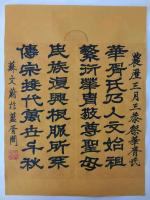 農曆三月三恭祭華胥氏
華胥氏乃人文始祖
繁衍華胄敬尊聖母
民族復興根脈所系
傳宗接代萬世千秋
蘇文